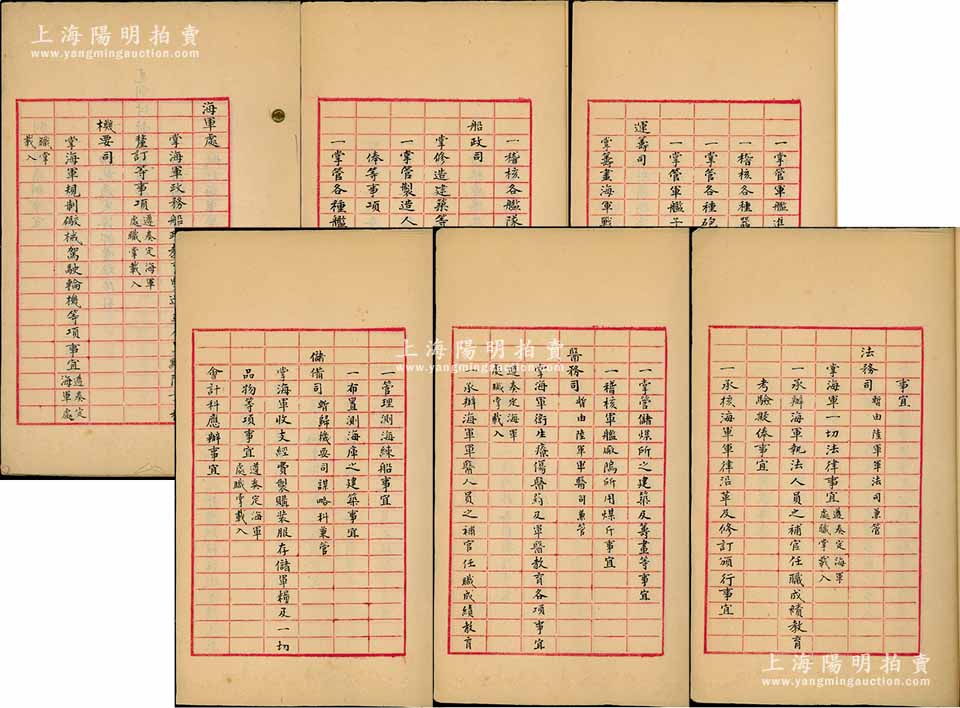 上海陽明拍賣
www.yangmingauction.com
海軍處
掌海軍政務船
釐訂等事項遵奏定海軍
處職掌載入
機要司
掌海軍規制儆械駕駛輪機等項事宜遵奏定
海軍處
職掌
載入
一稽核各艦隊
船政司
掌修造建築等
一掌管製造人
俸等事項
一掌管各種艦
一掌管軍艦進
一稽核各種器
一掌管各種砲
一掌管軍艦子
運籌司
掌籌畫海軍戰
一管理測海練船事宜
一布置測海庫之建築事宜
儲備司暫歸機要司謀略科兼管
掌海軍收支經費製購裝服存儲軍糈及一切
品物等項事宜遵奏定海軍
處職掌載入
會計科應辦事宜
一掌管儲煤所之建築及籌畫等事宜
一稽核軍艦廠隖所用煤斤事宜
醫務司暫由陸軍軍醫司兼管
掌海軍衛生療傷醫药及軍醫教育各項事宜
遵奏定海軍
處職掌載入
一承辦海軍軍醫人員之補官任職成績教育
事宜
法務司暫由陸軍軍法司兼管
掌海軍一切法律事宜遵奏定海軍
處職掌載入
一承辦海軍執法人員之補官任職成績教育
考驗擬俸事宜
一承核海軍軍律沿革及修訂頒行事宜
上海陽明拍賣
www.yangmingauction.com
上海陽明拍賣
www.yangmingauction.com